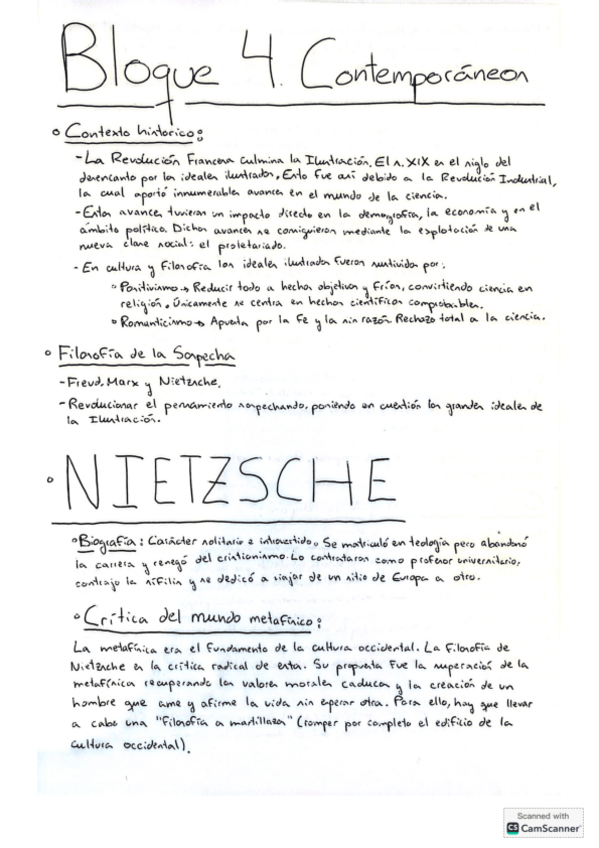 Bloque 4. Contemporáneos
Contexto historico:
- La Revolución Francesa culmina la Ilustración. El s. XIX es el siglo del
desencanto por los ideales ilustrados. Esto fue así debido a la Revolución Industrial,
la cual aportó innumerables avances en el mundo de la ciencia.
- Estos avances tuvieron un impacto directo en la demografía, la economía y en el
ámbito político. Dichos avances se consiguieron mediante la explotación de una
nueva clase social: el proletariado.
- En cultura y Filosofía los ideales ilustrados fueron sustividos por:
Positivismo → Reducir todo a hechos objetivos y fríos, convirtiendo ciencia en
religión. Únicamente se centra en hechos científicos comprobables.
Romanticismo → Apuesta por la Fe y la sin razón. Rechazo total a la ciencia.
Filosofía de la Sospecha
- Freud, Marx y Nietzsche.
- Revolucionar el pensamiento sospechando, poniendo en cuestión los grandes ideales de
la Ilustración.
NIETZSCHE
Biografía: Carácter solitario e introvertido. Se matriculó en teología pero abandonó
la carrera y renegó del cristianismo. Lo contrataron como profesor universitario,
contrajo la sífilis y se dedicó a viajar de un sitio de Europa a otro.
Crítica del mundo metafísico:
La metafísica era el fundamento de la cultura occidental. La Filosofía de
Nietzsche es la crítica radical de esta. Su propuesta fue la superación de la
metafísica recuperando los valores morales caducos y la creación de un
hombre que ame y afirme la vida sin esperar otra. Para ello, hay que llevar
a cabo una "Filosofía a martillazos" (romper por completo el edificio de la
cultura occidental).
Scanned with
CS CamScanner